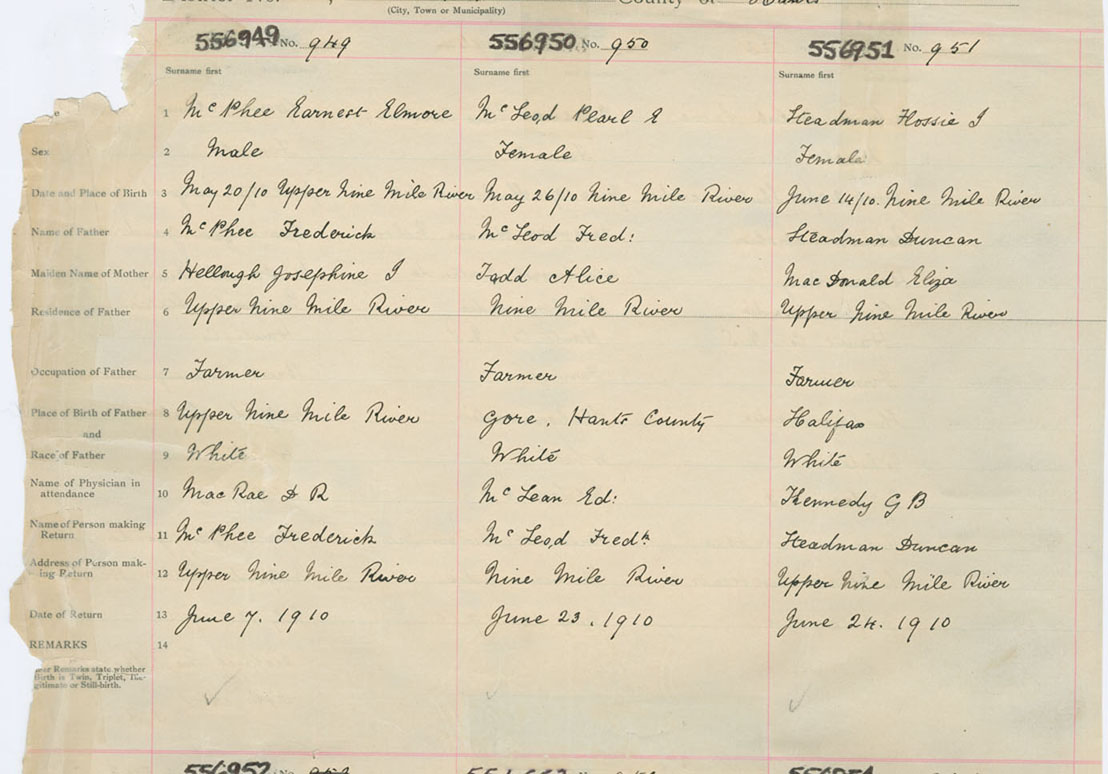 (City, Town or Municipality) County of Hants
556949 No. 949 556950 No. 950 556951 No. 951
Surname first Surname first Surname first
1 McPhee Earnest Elmore McLeod Pearl E Steadman Flossie J
Sex 2 Male Female Female
Date and Place of Birth 3 May 20/10 Upper Nine Mile River May 26/10 Nine Mile River June 14/10. Nine Mile River
Name of Father 4 McPhee Frederick McLeod Fred: Steadman Duncan
Maiden Name of Mother 5 Hellough Josephine J Tadd Alice MacDonald Eliza
Residence of Father 6 Upper Nine Mile River Nine Mile River Upper Nine Mile River
Occupation of Father 7 Farmer Farmer Farmer
Place of Birth of Father 8 Upper Nine Mile River Gore, Hants County Halifax
and
Race of Father 9 White White White
Name of Physician in
attendance 10 MacRae D R McLean Ed: Kennedy G B
Name of Person making
Return 11 McPhee Frederick McLeod Fredk Steadman Duncan
Address of Person mak-
ing Return 12 Upper Nine Mile River Nine Mile River Upper Nine Mile River
Date of Return 13 June 7. 1910 June 23. 1910 June 24. 1910
REMARKS 14
Remarks state whether
Birth is Twin, Triplet, Ille-
gitimate or Still-birth.
556952 No.